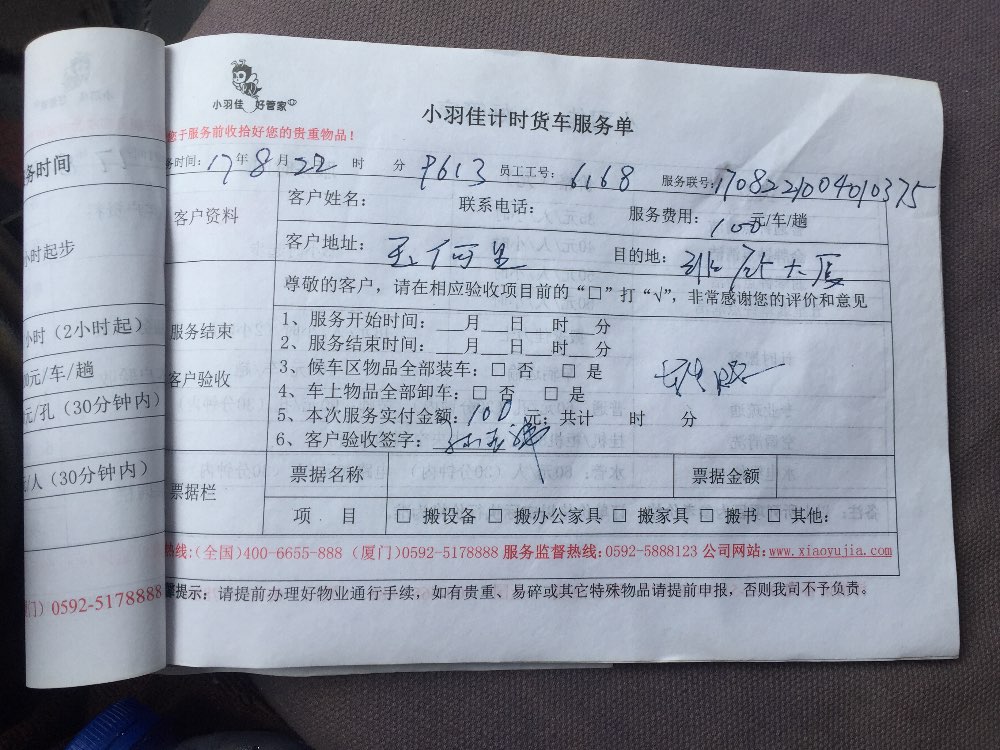 小羽佳 好管家
小羽佳计时货车服务单
您于服务前收拾好您的贵重物品！
务时间：17年8月22 时 分 9613 员工工号：6168 服务联号：1708221004010375
客户资料
客户姓名： 联系电话： 服务费用：100元/车/趟
客户地址： 目的地： 大厦
尊敬的客户，请在相应验收项目前的“□”打“√”，非常感谢您的评价和意见
服务结束
客户验收
1、服务开始时间：___月___日___时___分
2、服务结束时间：___月___日___时___分
3、候车区物品全部装车：□ 否 □ 是
4、车上物品全部卸车：□ 否 □ 是
5、本次服务实付金额：100元；共计 时 分
6、客户验收签字：
票据栏
票据名称 票据金额
项 目 □ 搬设备 □ 搬办公家具 □ 搬家具 □ 搬书 □ 其他：
热线：(全国)400-6655-888 (厦门)0592-5178888 服务监督热线：0592-5888123 公司网站：www.xiaoyujia.com
提示：请提前办理好物业通行手续，如有贵重、易碎或其它特殊物品请提前申报，否则我司不予负责。
务时间
小时起步
小时（2小时起）
元/车/趟
元/孔（30分钟内）
/人（30分钟内）
门）0592-5178888